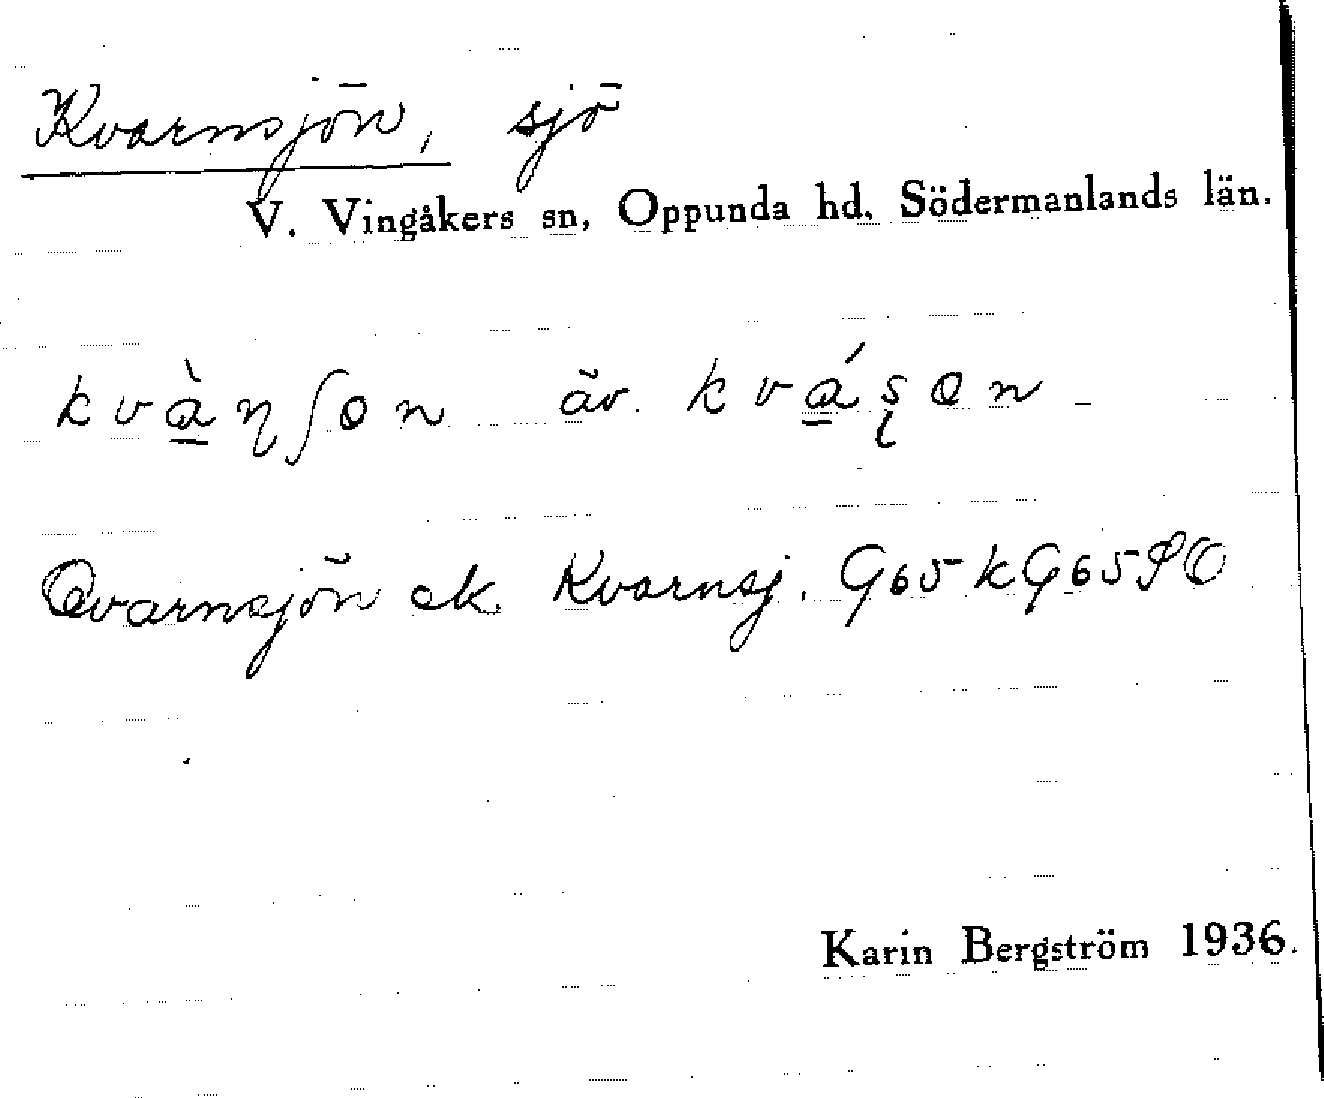 Kvarnsjön, sjö
V. Vingåkers sn, Oppunda hd, Södermanlands län.
kvàɳʃon äv. kváʂon
Qvarnsjön ek. Kvarnsj. G65 kG65SO
Karin Bergström 1936.